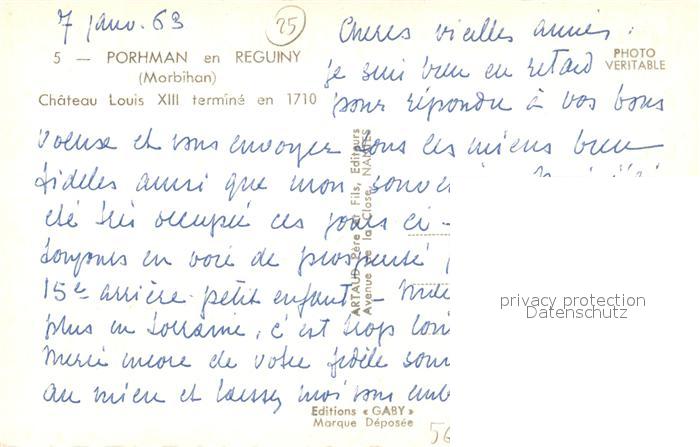 7 janv. 63
25
5 — PORHMAN en REGUINY
(Morbihan)
Château Louis XIII terminé en 1710
PHOTO
VERITABLE
Cheres vieilles amies :
je suis bien en retard
pour répondre à vos bons
voeux et vous envoyer tous les miens bien
fideles ainsi que mon souve
été très occupée ces jours ci -
toujours en voie de prosperité
15e arrière-petit enfant -
plus en Lorraine, c'est trop loin
Merci encore de votre fidèle souv
au mien et laissez moi vous emb
ARTAUD Père et Fils, Editeurs
Avenue de la Close, NANTES
Editions « GABY »
Marque Déposée
56
privacy protection
Datenschutz